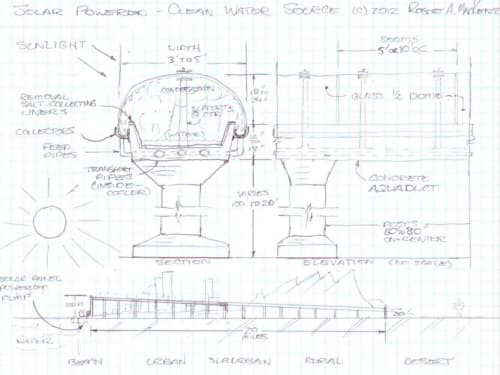 SOLAR POWERED - CLEAN WATER SOURCE 10/2012 ROBERT A.
SUNLIGHT
WIDTH
3' TO 5'
5' OR 10' OC
CONDENSATION
REMOVAL
SALT-COLLECTING
LINERS
SUPPORTS
5' CTR
(WATER)
COLLECTORS
FEED
PIPES
GLASS 1/2 DOME
TRANSPORT
PIPES
(INSIDE-
COOLER)
CONCRETE
AQUADUCT
VARIES
100' TO 20'
POSTS
60' TO 80'
ON-CENTER
SECTION
ELEVATION (NO SCALE)
SOLAR PANEL
POWERED
PUMP
WATER
20
MILES
20'
BEACH URBAN SUBURBAN RURAL DESERT